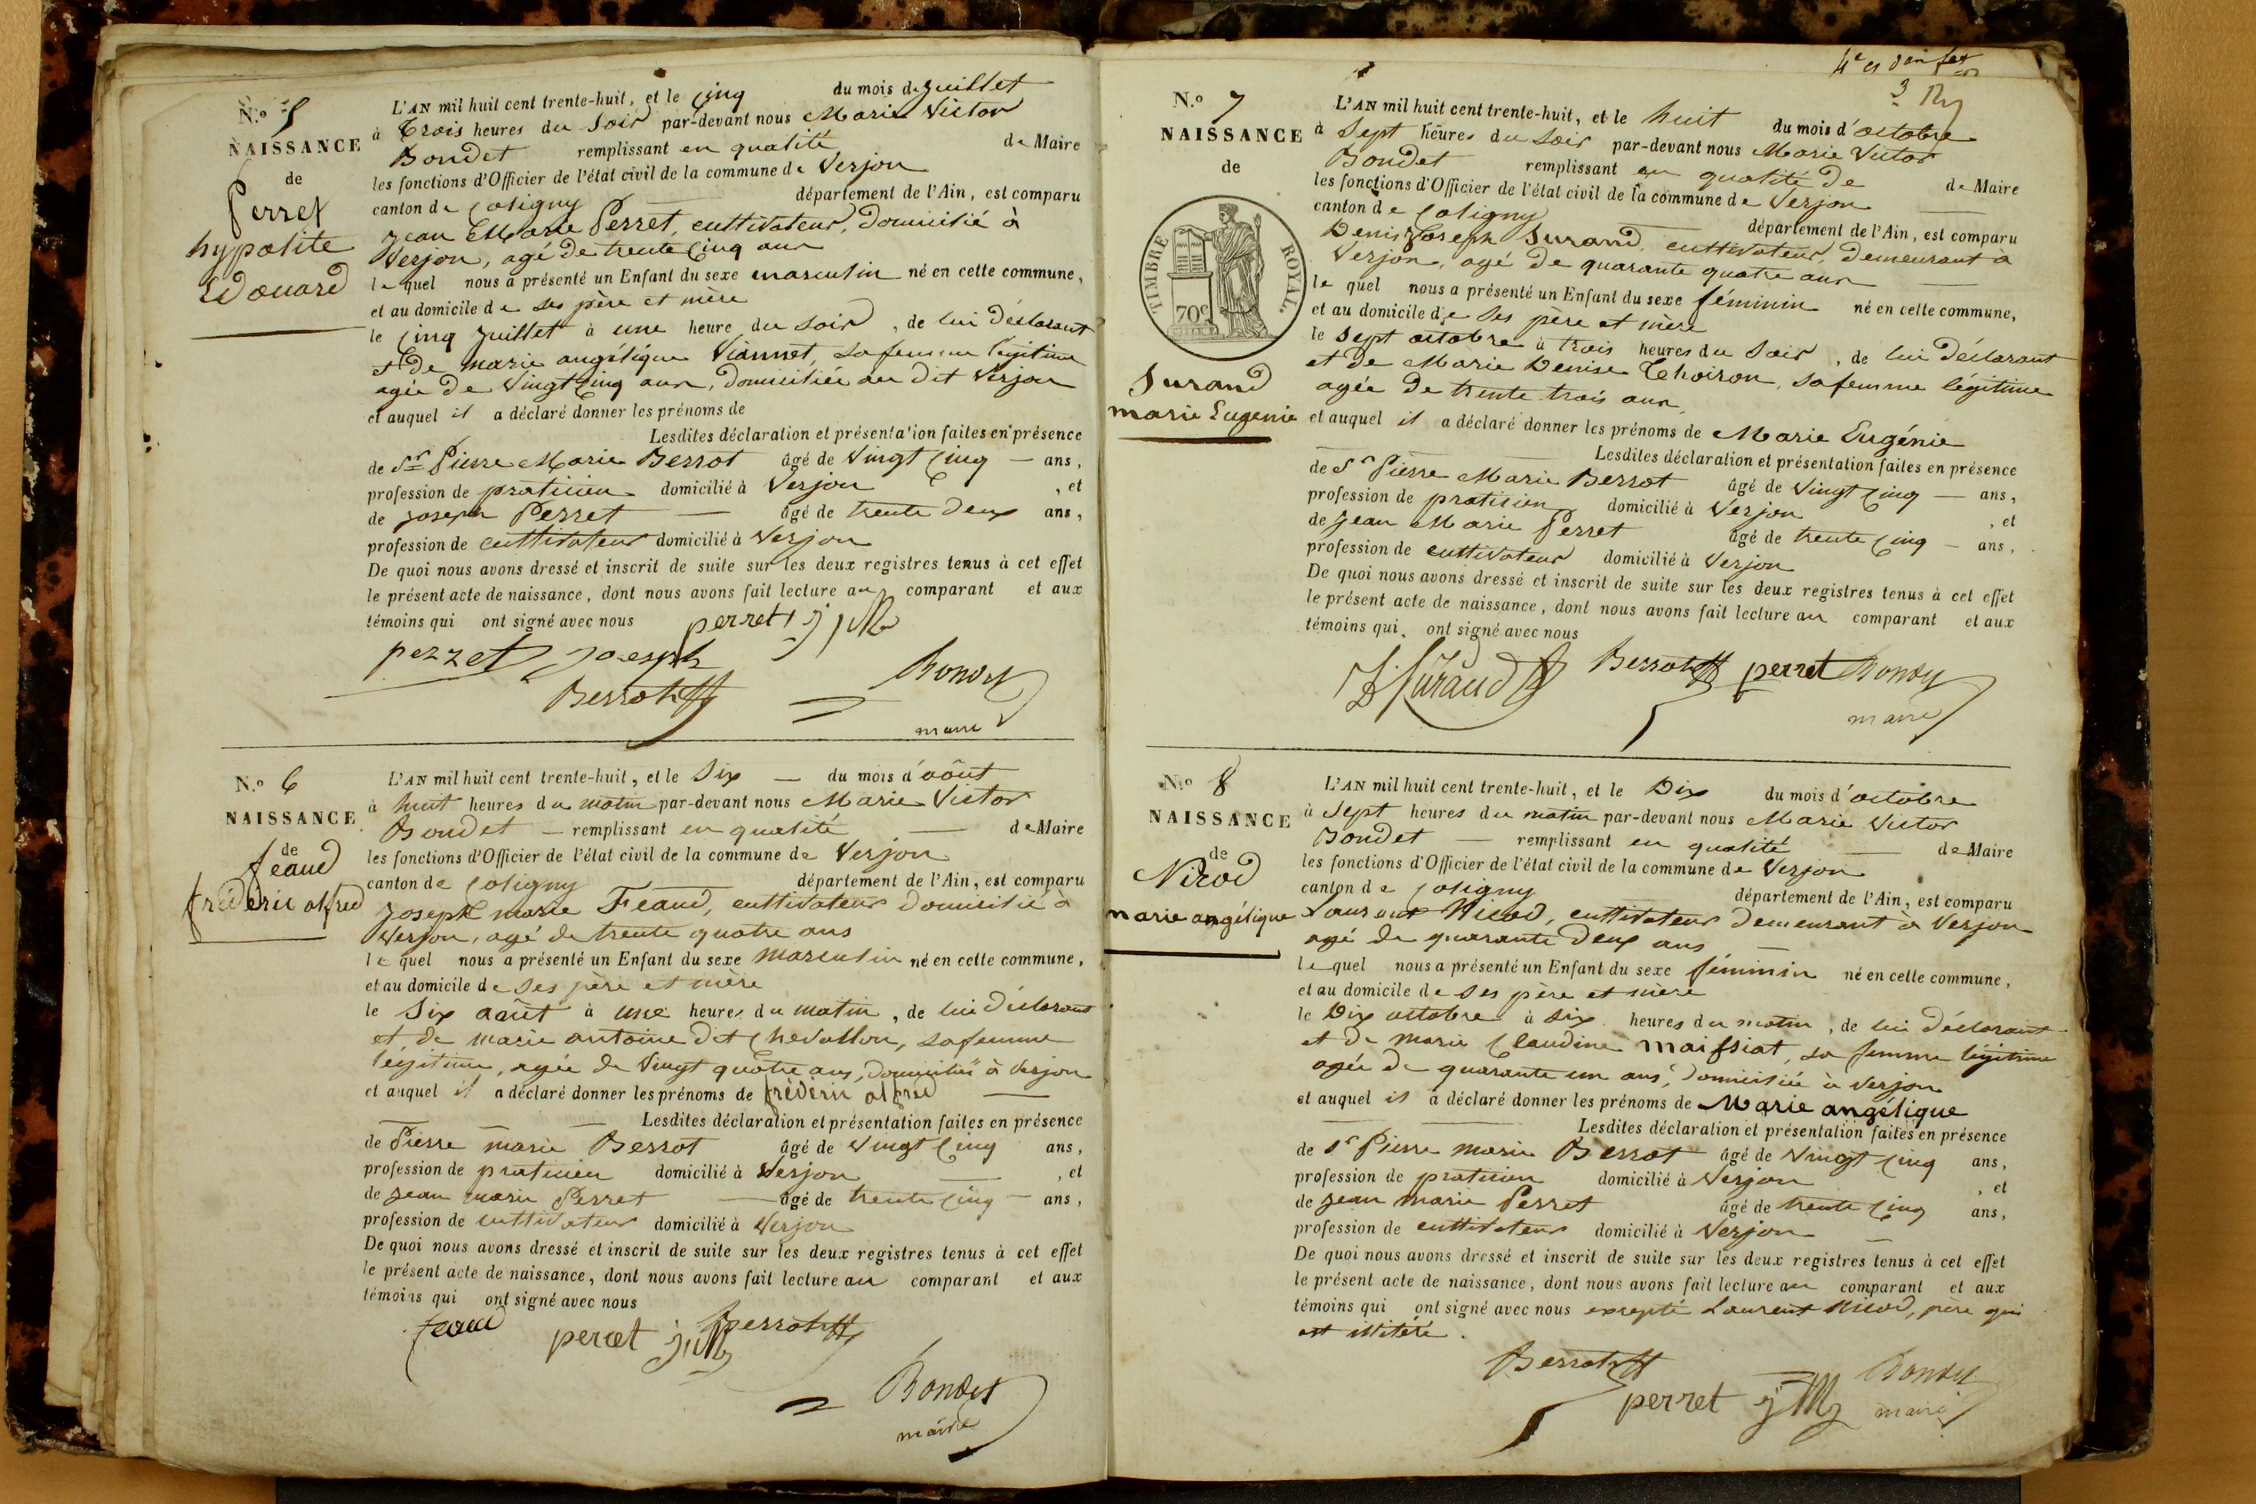 N.º 5
NAISSANCE
de
Perret
hypolite
Edouard
L'AN mil huit cent trente-huit, et le cinq du mois de juillet
à Trois heures du soir par-devant nous Marie Victor
Bondet remplissant en qualité de Maire
les fonctions d'Officier de l'état civil de la commune de Verjon
canton de Coligny département de l'Ain, est comparu
Jean Marie Perret, cultivateur, domicilié à
Verjon, agé de trente cinq ans
le quel nous a présenté un Enfant du sexe masculin né en cette commune,
et au domicile de ses père et mère
le cinq juillet à une heure du soir, de lui déclarant
et de marie angélique Viannet, sa femme légitime
agée de Vingt cinq ans, domiciliée au dit Verjon
et auquel il a déclaré donner les prénoms de
Lesdites déclaration et présentation faites en présence
de Sr Pierre Marie Berrot âgé de Vingt cinq ans,
profession de praticien domicilié à Verjon, et
de joseph Perret âgé de trente deux ans,
profession de cultivateur domicilié à Verjon
De quoi nous avons dressé et inscrit de suite sur les deux registres tenus à cet effet
le présent acte de naissance, dont nous avons fait lecture au comparant et aux
témoins qui ont signé avec nous perret j M
perret joseph
Berrot
Bondet
maire
N.º 6
NAISSANCE
de
feaud
frédéric alfred
L'AN mil huit cent trente-huit, et le Six du mois d'août
à huit heures du matin par-devant nous Marie Victor
Bondet remplissant en qualité de Maire
les fonctions d'Officier de l'état civil de la commune de Verjon
canton de Coligny département de l'Ain, est comparu
Joseph marie Feaud, cultivateur domicilié à
Verjon, agé de trente quatre ans
le quel nous a présenté un Enfant du sexe masculin né en cette commune,
et au domicile de ses père et mère
le Six août à une heures du matin, de lui déclarant
et de marie antoine dit Chevallon, sa femme
légitime, agée de Vingt quatre ans, domiciliée à Verjon
et auquel il a déclaré donner les prénoms de frédéric alfred
Lesdites déclaration et présentation faites en présence
de Pierre marie Berrot âgé de Vingt cinq ans,
profession de praticien domicilié à Verjon, et
de jean marie Perret âgé de trente cinq ans,
profession de cultivateur domicilié à Verjon
De quoi nous avons dressé et inscrit de suite sur les deux registres tenus à cet effet
le présent acte de naissance, dont nous avons fait lecture au comparant et aux
témoins qui ont signé avec nous
feaud perret j M Berrot
Bondet
maire
N.º 7
NAISSANCE
de
TIMBRE ROYAL.
70c
Jurand
marie Eugenie
L'AN mil huit cent trente-huit, et le huit du mois d'octobre
à Sept heures du soir par-devant nous Marie Victor
Bondet remplissant en qualité de de Maire
les fonctions d'Officier de l'état civil de la commune de Verjon
canton de Coligny département de l'Ain, est comparu
Denis Joseph Jurand, cultivateur, demeurant à
Verjon, agé de quarante quatre ans
le quel nous a présenté un Enfant du sexe féminin né en cette commune,
et au domicile de ses père et mère
le Sept octobre à trois heures du soir, de lui déclarant
et de Marie Denise Thoiron, sa femme légitime
agée de trente trois ans,
et auquel il a déclaré donner les prénoms de Marie Eugénie
Lesdites déclaration et présentation faites en présence
de Sr Pierre Marie Berrot âgé de Vingt cinq ans,
profession de praticien domicilié à Verjon, et
de jean Marie Perret âgé de trente cinq ans,
profession de cultivateur domicilié à Verjon
De quoi nous avons dressé et inscrit de suite sur les deux registres tenus à cet effet
le présent acte de naissance, dont nous avons fait lecture au comparant et aux
témoins qui ont signé avec nous
Jurand Berrot perret Bondet
maire
N.º 8
NAISSANCE
de
Nicod
marie angélique
L'AN mil huit cent trente-huit, et le Dix du mois d'octobre
à Sept heures du matin par-devant nous Marie Victor
Bondet remplissant en qualité de Maire
les fonctions d'Officier de l'état civil de la commune de Verjon
canton de Coligny département de l'Ain, est comparu
Laurent Nicod, cultivateur demeurant à Verjon
agé de quarante deux ans
le quel nous a présenté un Enfant du sexe féminin né en cette commune,
et au domicile de ses père et mère
le Dix octobre à six heures du matin, de lui déclarant
et de marie Claudine maissiat, sa femme légitime
agée de quarante un ans, domiciliée à Verjon
et auquel il a déclaré donner les prénoms de Marie angélique
Lesdites déclaration et présentation faites en présence
de Sr Pierre marie Berrot âgé de Vingt cinq ans,
profession de praticien domicilié à Verjon, et
de jean marie Perret âgé de trente cinq ans,
profession de cultivateur domicilié à Verjon
De quoi nous avons dressé et inscrit de suite sur les deux registres tenus à cet effet
le présent acte de naissance, dont nous avons fait lecture au comparant et aux
témoins qui ont signé avec nous excepté Laurent Nicod, père qui
est illitéré.
Berrot
perret j M Bondet
maire